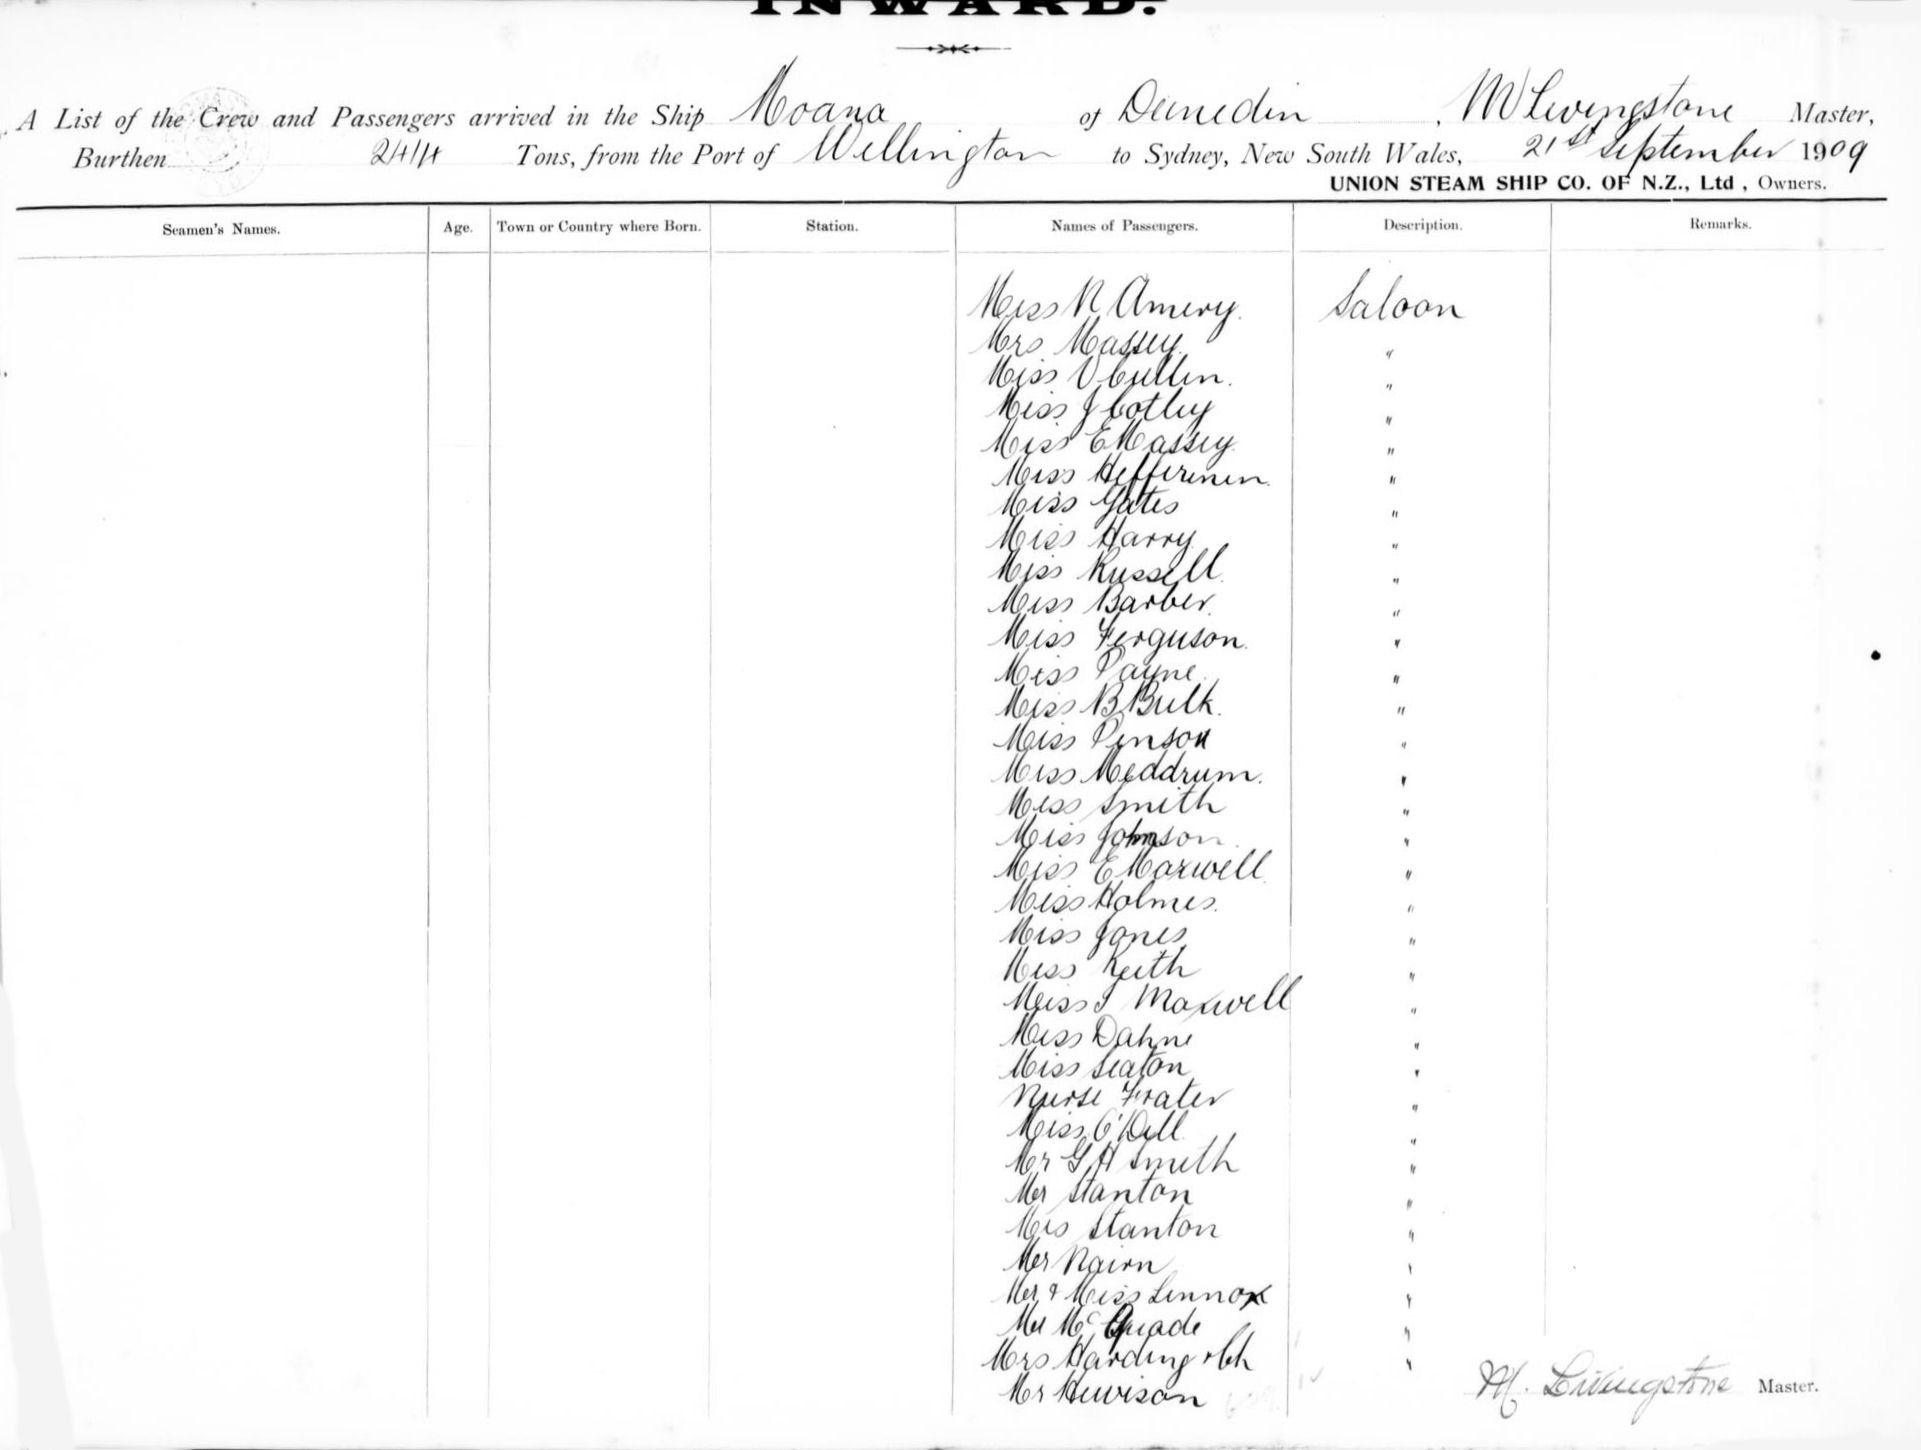 INWARD.
A List of the Crew and Passengers arrived in the Ship Moana of Dunedin, M Livingstone Master,
Burthen 2414 Tons, from the Port of Wellington to Sydney, New South Wales, 21st September 1909
UNION STEAM SHIP CO. OF N.Z., Ltd, Owners.
Seamen's Names. Age. Town or Country where Born. Station. Names of Passengers. Description. Remarks.
Miss N Amery. Saloon
Mrs Massey. "
Miss V Cullen. "
Miss J Cotley "
Miss E Massey. "
Miss Heffernen. "
Miss Gates "
Miss Harry. "
Miss Russell. "
Miss Barber. "
Miss Ferguson. "
Miss Payne. "
Miss B Bulk. "
Miss Penson "
Miss Meddrum. "
Miss Smith "
Miss Johnson. "
Miss E Maxwell. "
Miss Holmes. "
Miss Jones "
Miss Keith "
Miss I Maxwell "
Miss Dahne "
Miss Seaton "
Nurse Frater "
Miss O'Dell "
Mr G H Smith "
Mr Stanton "
Mrs Stanton "
Mr Nairn "
Mr & Miss Lennox "
Mr Mc Quade "
Mrs Harding & Ch "
Mr Hewison
M. Livingstone Master.